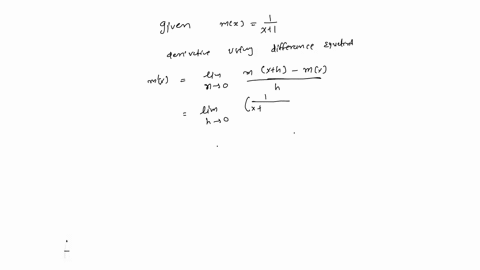 given m(x) = 1/(x+1)
derivative using difference quotient
m'(x) = lim n→0 (m(x+h) - m(x))/h
= lim h→0 (1/(x+